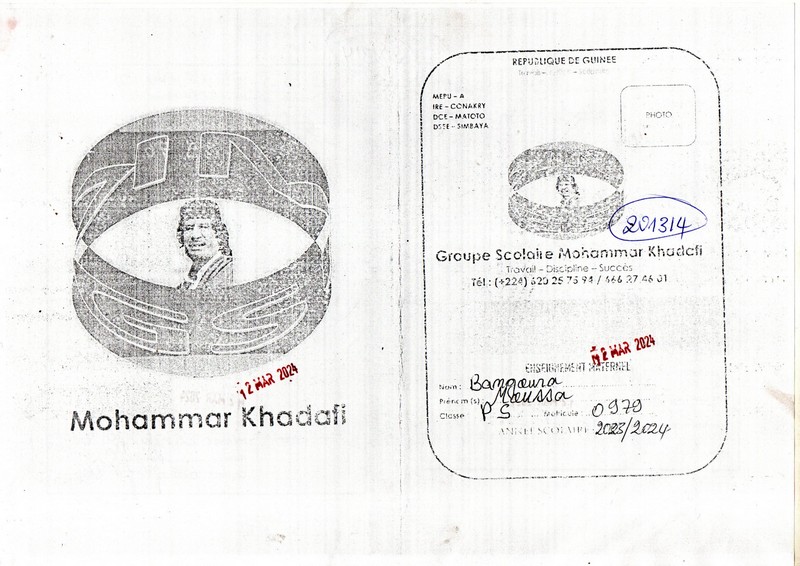 12 MAR 2024
Mohammar Khadafi
REPUBLIQUE DE GUINEE
MEPU – A
IRE – CONAKRY
DCE – MATOTO
DSEE – SIMBAYA
PHOTO
201314
Groupe Scolaire Mohammar Khadafi
Travail – Discipline – Succès
Tél : (+224)
12 MAR 2024
ENSEIGNEMENT MATERNEL
Nom : Bangoura
Prénom (s) : Moussa
Classe : PS Matricule : 0979
ANNEE SCOLAIRE 2023/2024